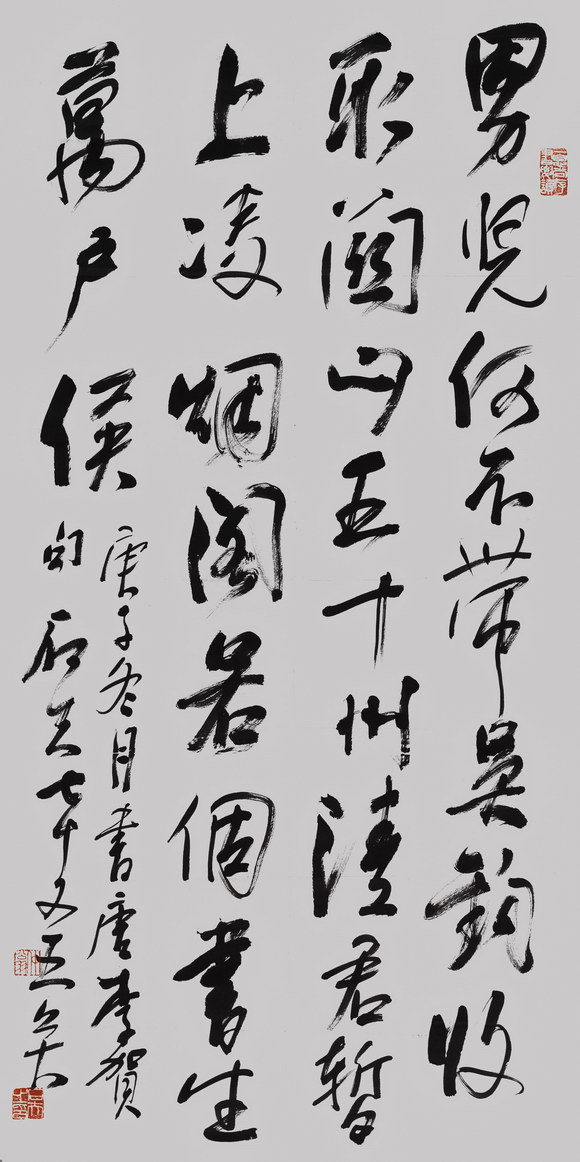 男兒何不帶吳鈎收
取關山五十州請君暫
上凌烟閣若個書生
萬户侯
庚子冬月書唐李賀
句 七十又五